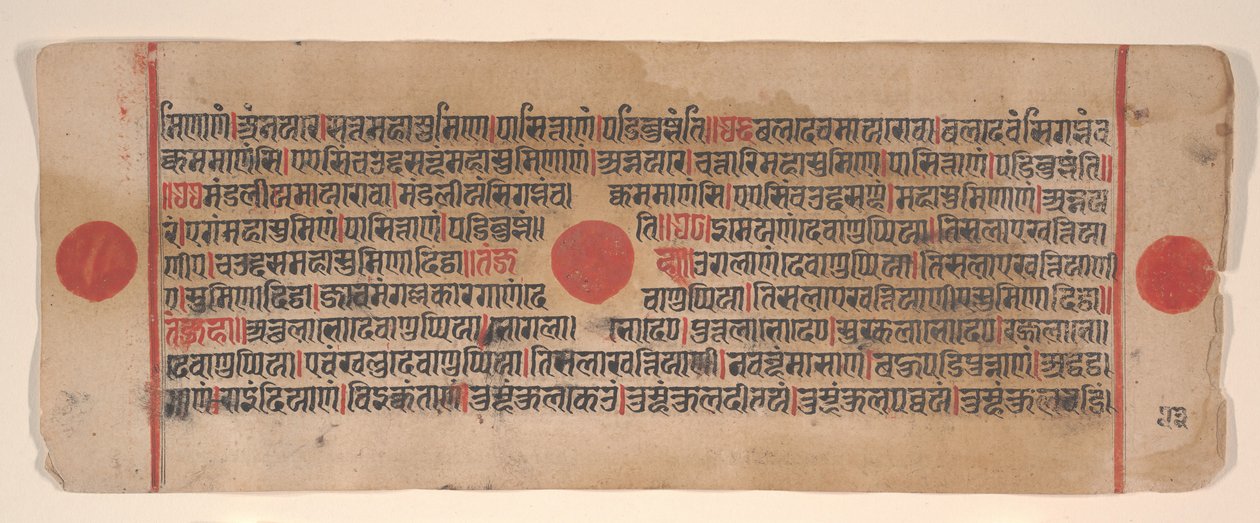 मिणाणं।अन्नयरे।सत्तमहासुमिणे।पासित्ताणं।पडिबुज्झंति॥७६बलदेवमायरोवा।बलदेवंसिगब्भंव
क्कममाणंसि।एएसिंचउद्दसण्हंमहासुमिणाणं।अन्नयरे।चत्तारिमहासुमिणे।पासित्ताणं।पडिबुज्झंति॥
॥७७मंडलीयमायरोवा।मंडलीयंसिगब्भंव।क्कममाणंसि।एएसिंचउद्दसण्हं।महासुमिणाणं।अन्नय
रं।एगंमहासुमिणं।पासित्ताणं।पडिबुज्झं॥ति॥७८।इमेयणंदेवाणुप्पिया।तिसलाएखत्तिया
णीए।चउद्दसमहासुमिणादिट्ठा॥तंउरालाणंदेवाणुप्पिया।तिसलाएखत्तियाणी
ए।सुमिणादिट्ठा।जावमंगल्लकारगाणंदेवाणुप्पिया।तिसलाएखत्तियाणीएसुमिणादिट्ठा॥
तंजहा॥अत्थलाभोदेवाणुप्पिया।भोगला।भोदे०।पुत्तलाभोदे०।सुक्खलाभोदे०।रज्जलाभो।
देवाणुप्पिया।एवंखलुदेवाणुप्पिया।तिसलाखत्तियाणी।नवण्हंमासाणं।बहुपडिपुन्नाणं।अद्धट्ठ।
माणं।राइंदियाणं।विइक्कंताणं।तुम्हंकुलकेउं।तुम्हंकुलदीवयं।तुम्हंकुलपव्वयं।तुम्हंकुलवडिं।